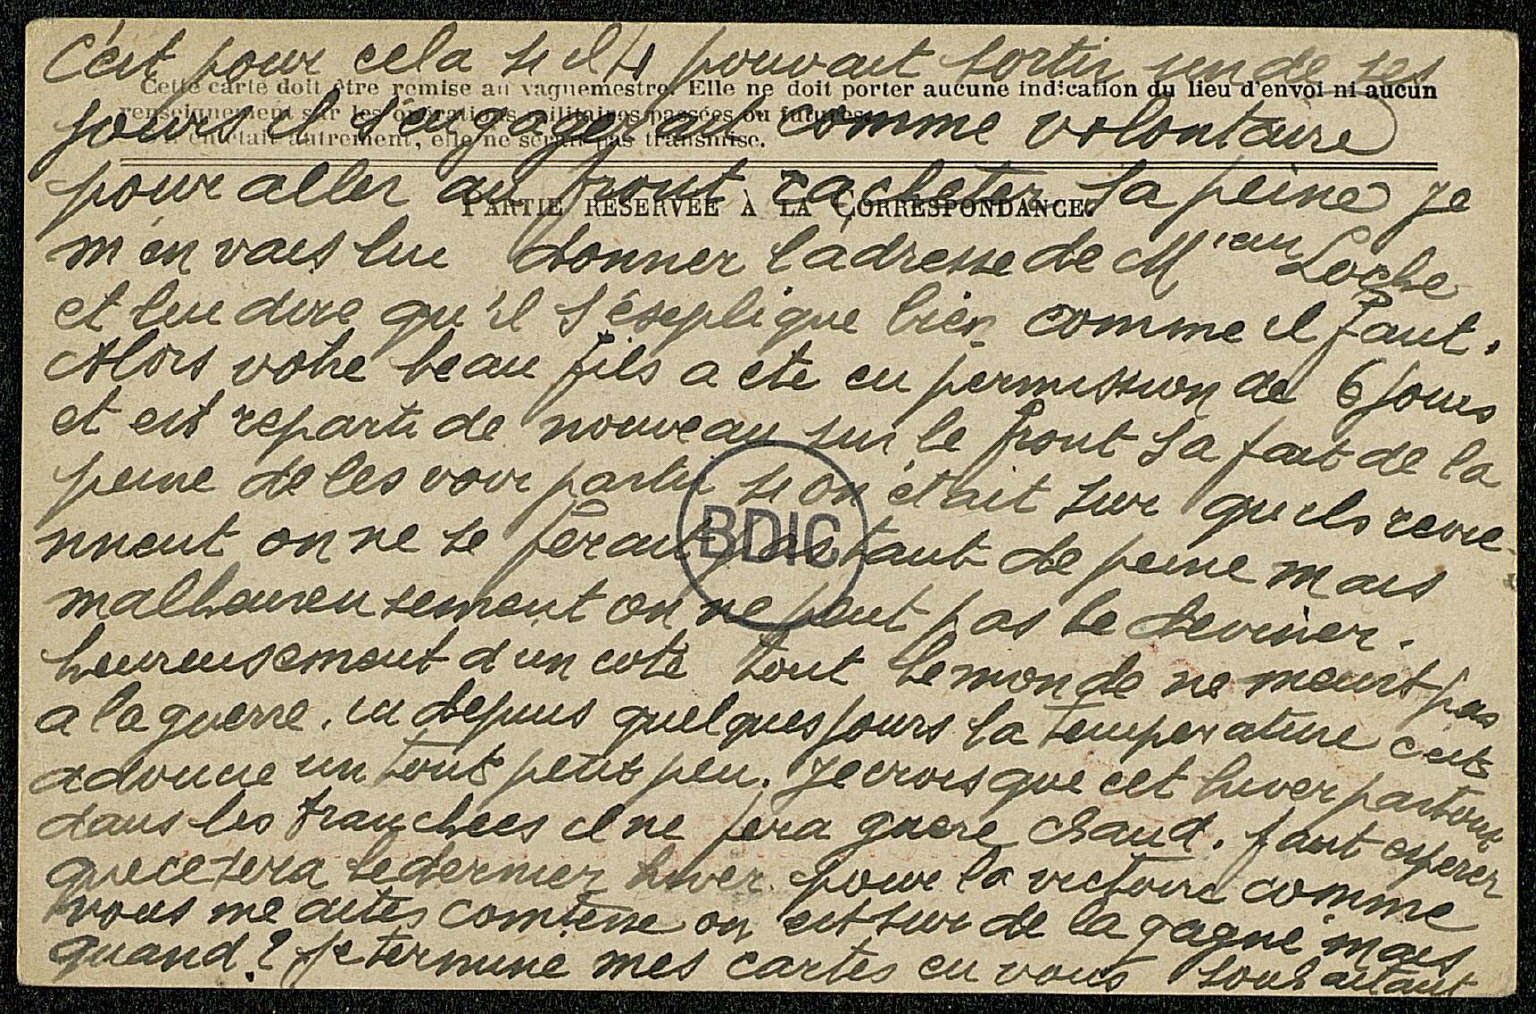 C'est pour cela si il pouvait sortir un de ses
Cette carte doit être remise au vaguemestre. Elle ne doit porter aucune indication du lieu d'envoi ni aucun
renseignement sur les opérations militaires passées ou futures.
S'il en était autrement, elle ne serait pas transmise.
jours il s'engagerait comme volontaire
pour aller au front racheter sa peine je
PARTIE RÉSERVÉE A LA CORRESPONDANCE.
m'en vais lui donner l'adresse de Mr Loche
et lui dire qu'il s'ésplique bien comme il faut.
Alors votre beau fils a ete en permission de 6 jours
et est reparti de nouveau sur le front sa fait de la
peine de les voir partir si on était sur qu'ils revie
nnent on ne se ferait pas tant de peine mais
malheureusement on ne peut pas le deviner.
heureusement d'un coté tout le monde ne meurt pas
a la guerre. ici depuis quelques jours la temperature c'est
adoucie un tout petit peu. Je crois que cet hiver partout
dans les tranchees il ne fera guere chaud. faut esperer
que ce sera le dernier hiver pour la victoire comme
vous me dites comtesse on est sur de la gagné mais
quand? Je termine mes cartes en vous souhaitant
BDIC